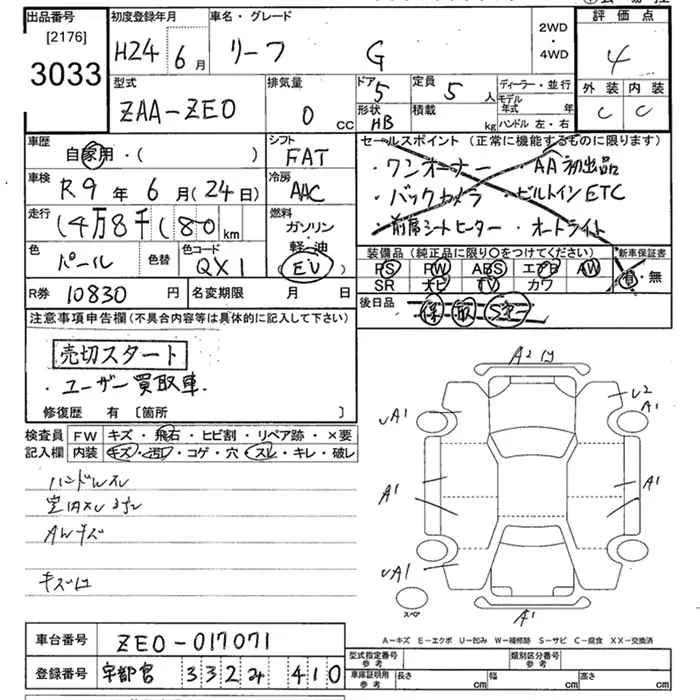 出品番号 初度登録年月 車名・グレード 2WD 評価点
[2176] H24 6月 リーフ G ・ 4
3033 4WD
型式 排気量 ドア 5 定員 5人 ディーラー・並行 外装 内装
ZAA-ZE0 0 cc 形状 HB 積載 kg モデル年式 年 C C
ハンドル 左・右
車歴 自家用・( ) シフト FAT セールスポイント(正常に機能するものに限ります)
車検 R9年6月(24日) 冷房 AAC ・ワンオーナー ・AA初出品
走行 (4万8千180 km 燃料 ・バックカメラ ・ビルトインETC
ガソリン ・前席シートヒーター ・オートライト
軽・油
色 パール 色替 色コード QX1 (EV) 装備品(純正品に限り○をつけてください) 新車保証書
PS PW ABS エアB AW 有・無
SR ナビ TV カワ
R券 10830円 名変期限 月 日 後日品 保 取
注意事項申告欄(不具合内容等は具体的に記入して下さい)
売切スタート
・ユーザー買取車.
修復歴 有〔箇所 〕
検査員 FW キズ・飛石・ヒビ割・リペア跡・×要
記入欄 内装 キズ・汚レ・コゲ・穴・スレ・キレ・破レ
ハンドルスレ
AWキズ
A2
A1 U2 A1
A1 A1
A1
A1
スペア
A-キズ E-エクボ U-凹み W-補修跡 S-サビ C-腐食 XX-交換済
車台番号 ZE0-017071 型式指定番号 参考 類別区分番号 参考
登録番号 宇都宮 332 410 車庫証明用 参考 長さ cm 幅 cm 高さ cm